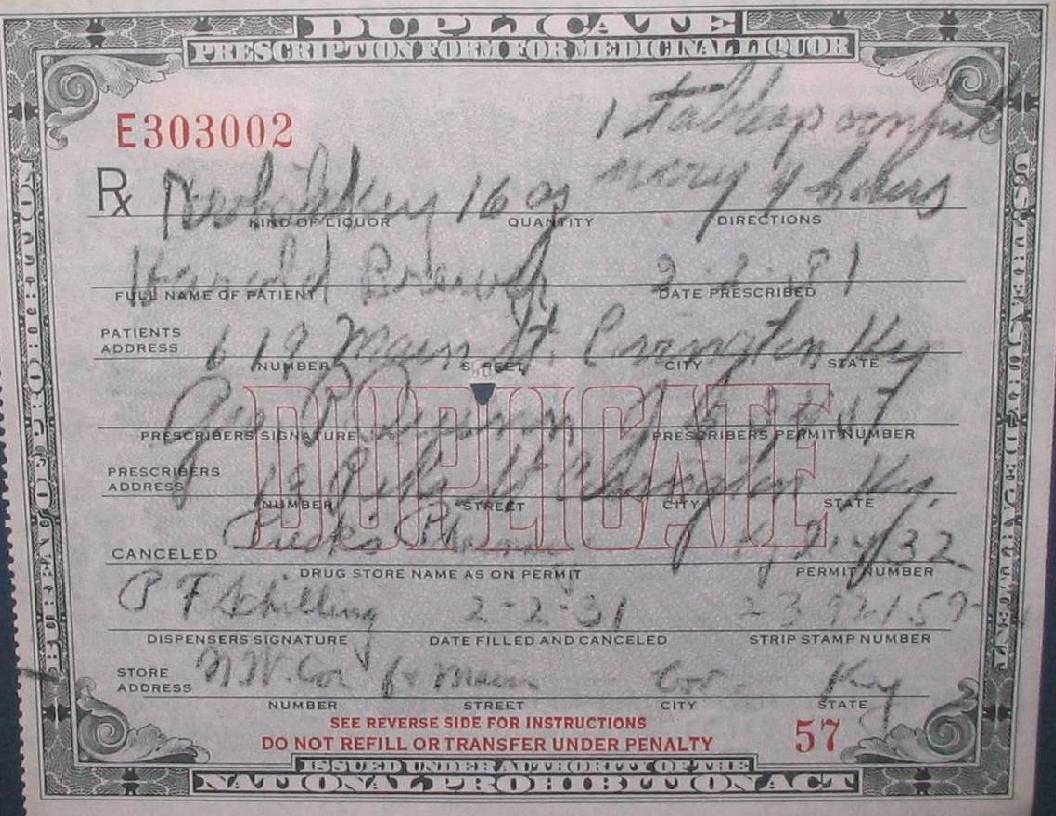 DUPLICATE
PRESCRIPTION FORM FOR MEDICINAL LIQUOR
E303002
1 tablespoonful
every 4 hours
Rx 16 oz
KIND OF LIQUOR QUANTITY DIRECTIONS
Harold 2-2-31
FULL NAME OF PATIENT DATE PRESCRIBED
PATIENTS ADDRESS 619 Main St. Covington Ky
NUMBER STREET CITY STATE
DUPLICATE
Geo P
PRESCRIBERS SIGNATURE PRESCRIBERS PERMIT NUMBER
PRESCRIBERS ADDRESS Pike St Covington Ky.
NUMBER STREET CITY STATE
CANCELED
DRUG STORE NAME AS ON PERMIT PERMIT NUMBER
P F Schilling 2-2-31
DISPENSERS SIGNATURE DATE FILLED AND CANCELED STRIP STAMP NUMBER
STORE ADDRESS N.W. Cor 6 & Main Cov. Ky
NUMBER STREET CITY STATE
SEE REVERSE SIDE FOR INSTRUCTIONS
DO NOT REFILL OR TRANSFER UNDER PENALTY 57
ISSUED UNDER AUTHORITY OF THE
NATIONAL PROHIBITION ACT
BUREAU OF PROHIBITION